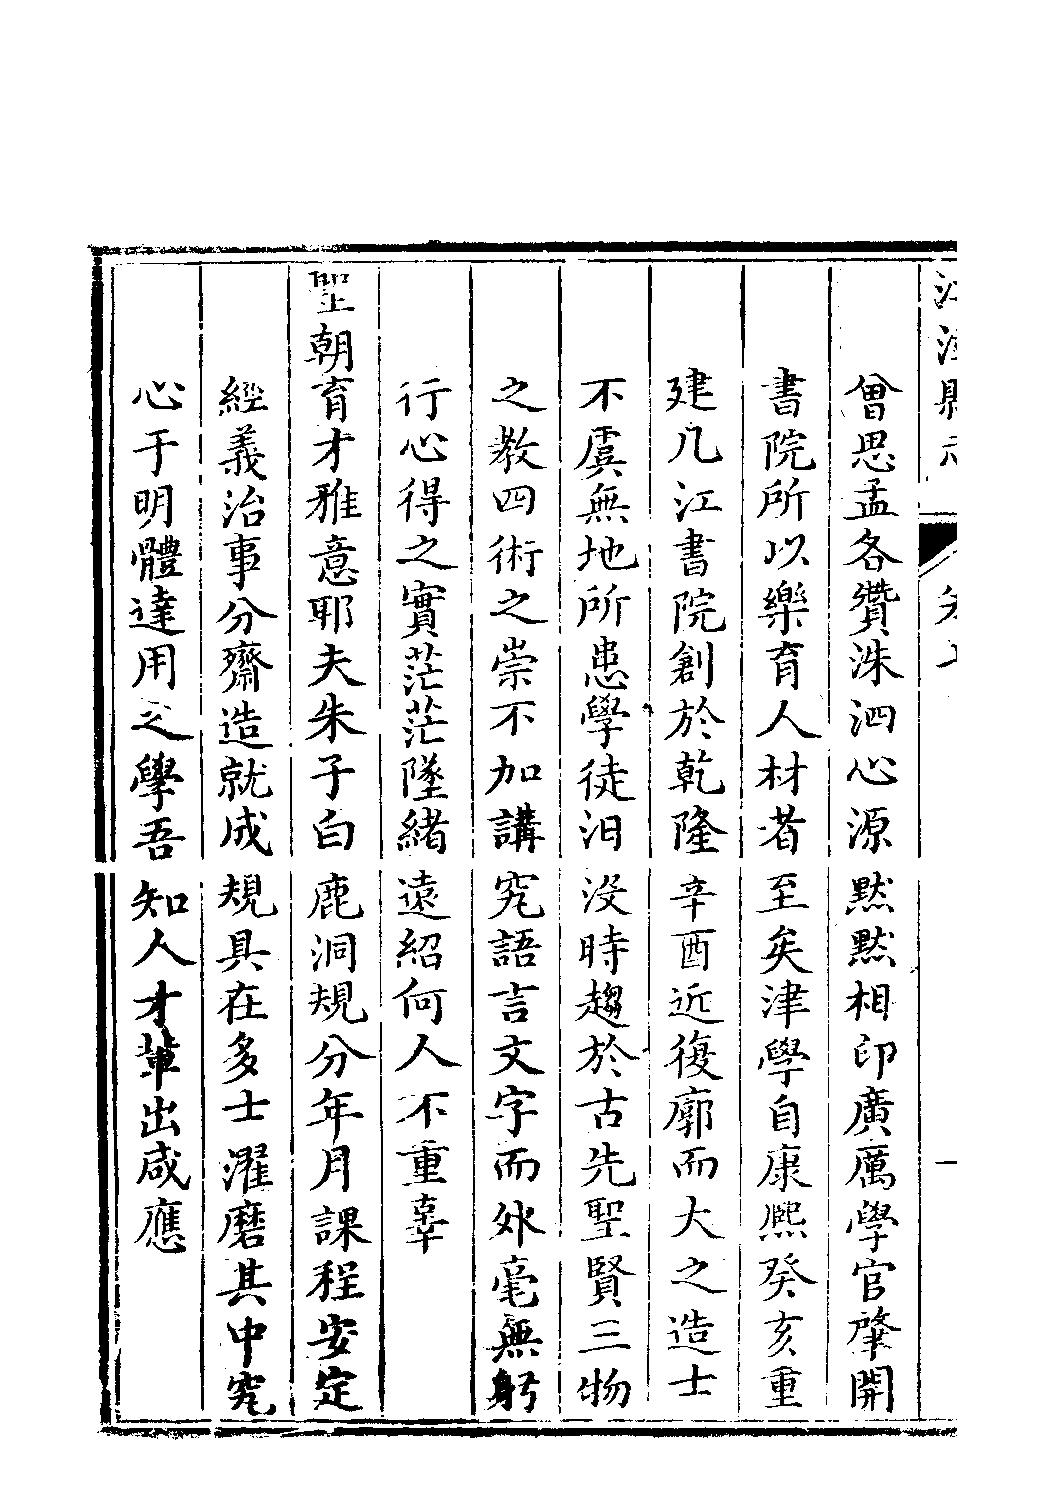 江津縣志 卷七 一
曾思孟各贊洙泗心源默默相印廣厲學官肇開
書院所以樂育人材者至矣津學自康熙癸亥重
建几江書院創於乾隆辛酉近復廓而大之造士
不虞無地所患學徒汨没時趨於古先聖賢三物
之教四術之崇不加講究語言文字而外毫無躬
行心得之實茫茫墜緒遠紹何人不重辜
聖朝育才雅意耶夫朱子白鹿洞規分年月課程安定
經義治事分齋造就成規具在多士濯磨其中究
心于明體達用之學吾知人才輩出咸應